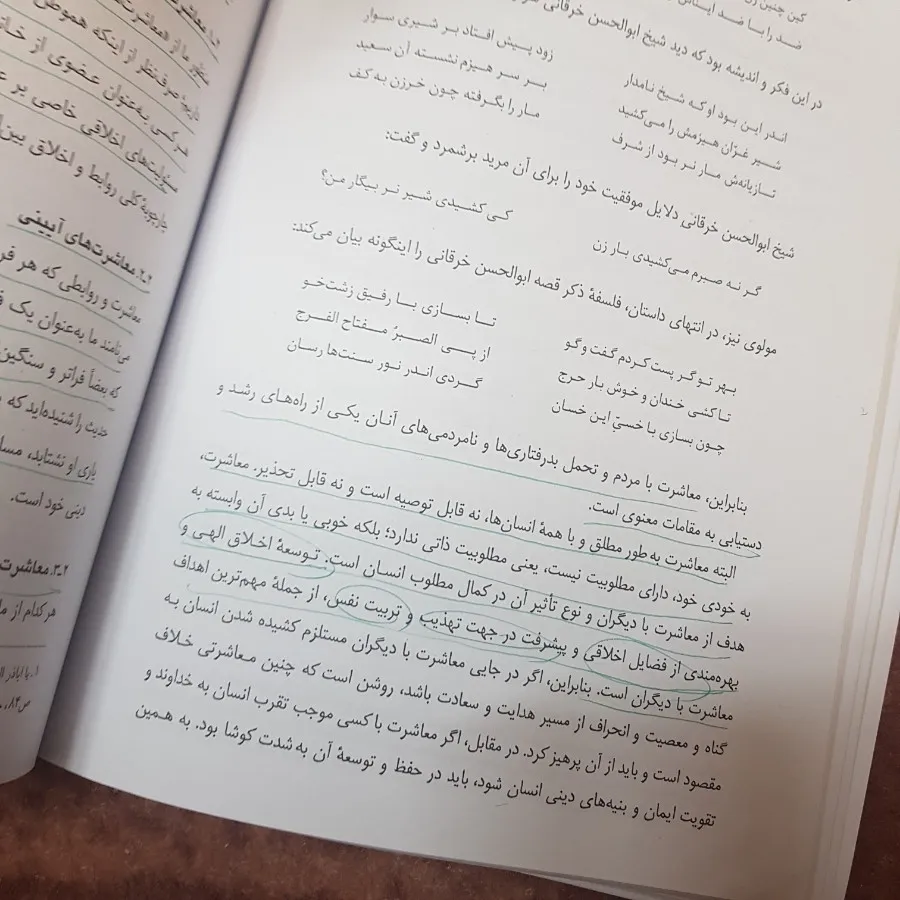 کین چنین زن
ضد را با ضد
در این فکر و اندیشه بود که دید شیخ ابوالحسن خرقانی
اندر این بود او که شیخ نامدار زود پیش افتاد بر شیری سوار
شیر غرّان هیزمش را می‌کشید بر سر هیزم نشسته آن سعید
تازیانه‌ش مار نر بود از شرف مار را بگرفته چون خرزن به کف
شیخ ابوالحسن خرقانی دلایل موفقیت خود را برای آن مرید برشمرد و گفت:
گر نه صبرم می‌کشیدی بار زن کی کشیدی شیر نر بیگار من؟
مولوی نیز، در انتهای داستان، فلسفهٔ ذکر قصه ابوالحسن خرقانی را اینگونه بیان می‌کند:
بهر تو گر پست کردم گفت و گو تا بسازی با رفیق زشت‌خو
تا کشی خندان و خوش بار حرج از پی الصبرُ مفتاح الفرج
چون بسازی با خسیّ این خسان گردی اندر نور سنت‌ها رسان
بنابراین، معاشرت با مردم و تحمل بدرفتاری‌ها و نامردمی‌های آنان یکی از راه‌های رشد و
دستیابی به مقامات معنوی است.
البته معاشرت به طور مطلق و با همهٔ انسان‌ها، نه قابل توصیه است و نه قابل تحذیر. معاشرت،
به خودی خود، دارای مطلوبیت نیست، یعنی مطلوبیت ذاتی ندارد؛ بلکه خوبی یا بدی آن وابسته به
هدف از معاشرت با دیگران و نوع تأثیر آن در کمال مطلوب انسان است. توسعهٔ اخلاق الهی و
بهره‌مندی از فضایل اخلاقی و پیشرفت در جهت تهذیب و تربیت نفس، از جملهٔ مهم‌ترین اهداف
معاشرت با دیگران است. بنابراین، اگر در جایی معاشرت با دیگران مستلزم کشیده شدن انسان به
گناه و معصیت و انحراف از مسیر هدایت و سعادت باشد، روشن است که چنین معاشرتی خلاف
مقصود است و باید از آن پرهیز کرد. در مقابل، اگر معاشرت با کسی موجب تقرب انسان به خداوند و
تقویت ایمان و بنیه‌های دینی انسان شود، باید در حفظ و توسعهٔ آن به شدت کوشا بود. به همین
منظور ما از «معاشرت
داریم؛ صرف‌نظر از اینکه هموطن
هر کسی به‌عنوان عضوی از
مسئولیت‌های اخلاقی خاصی بر
چارچوبهٔ کلی روابط و اخلاق
۲-۲. معاشرت‌های آیینی
معاشرت و روابطی که هر
می‌نامند ما به‌عنوان یک
که بعضاً فراتر و سنگین
حدیث را شنیده‌اید که
یاری او نشتابد،
دینی خود است.
۲-۳. معاشرت
هر کدام از ما
۱. یا اباذر